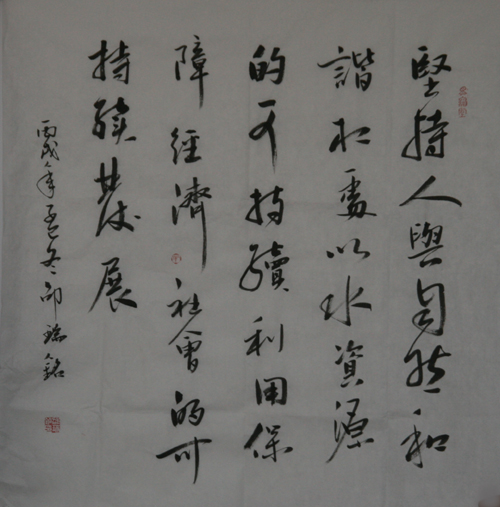 堅持人與自然和
諧相處以水資源
的可持續利用保
障經濟社會的可
持續發展
丙戌年孟冬邵瑞銘